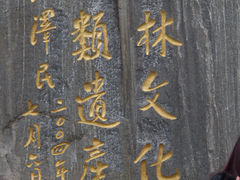 林文化
類遺產
澤民
二〇〇四年
七月六